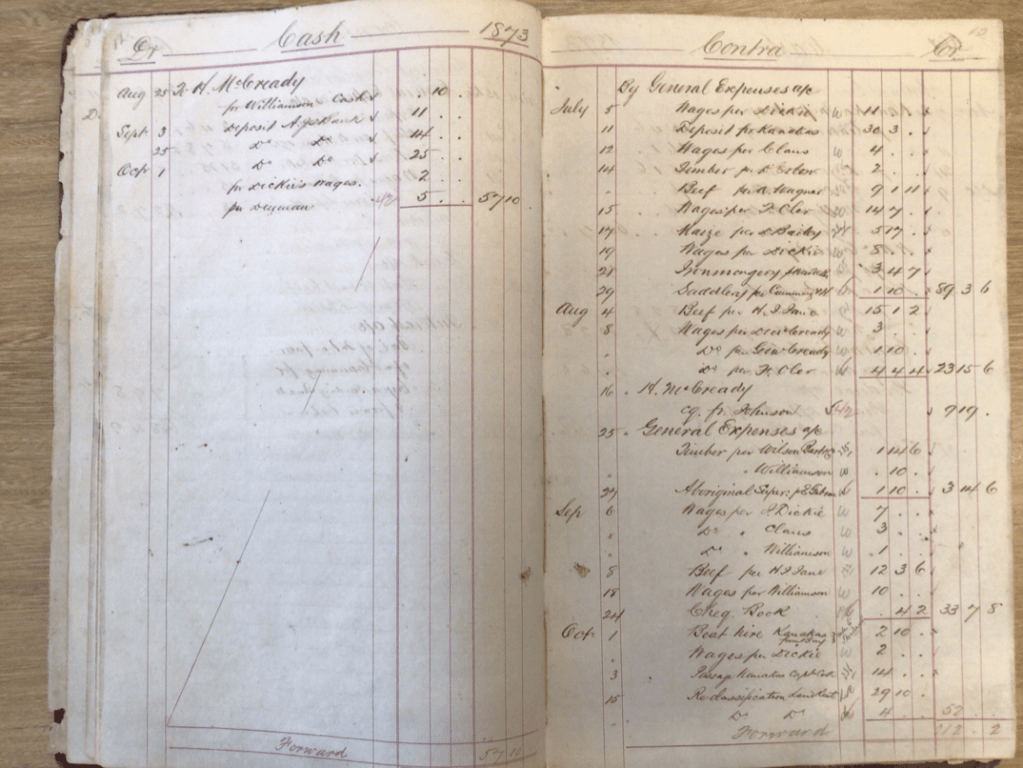 Dr Cash 1873
Aug 25 R. H. McCready
pr Williamson Cash 10 . .
Sept 3 Deposit A.J.S Bank 11 . .
25 Do Do 14 . .
Oct 1 Do Do 25 . .
pr Dickie's Wages. 2 . .
per 5 . . 57 10 .
Forward 57 10
Contra Cr
By General Expenses a/c
July 5 Wages per Dickie 11 . .
11 Deposit for Kanakas 30 3 .
12 Wages per Claus 4 . .
14 Timber pr 2 . .
" Beef pr R Wagner 9 1 11
15 Wages per F. Cler 14 7 .
17 Maize per Bailey 5 17 .
19 Wages per Dickie 8 . .
28 Ironmongery 3 4 7
29 Saddlery pr Cumming 1 10 . 89 3 6
Aug 4 Beef pr H. J Jane 15 1 2
8 Wages per McCready 3 . .
" Do per Geo McCready 1 10 .
" Do pr F. Cler 4 4 4 23 15 6
16 " H. McCready
cq. fr. Johnson 9 19 .
25 " General Expenses a/c
Timber per Wilson 1 14 6
" " Williamson . 10 .
Aboriginal 1 10 . 3 14 6
Sep 6 Wages per Dickie 7 . .
" Do " Claus 3 . .
" Do " Williamson 1 . .
8 Beef per H. J Jane 12 3 6
18 Wages per Williamson 10 . .
24 Cheq. Book . 4 2 33 7 8
Oct 1 Boat hire Kanakas 2 10 .
" Wages per Dickie 2 . .
3 Passage Kanakas 14 . .
15 Reclassification Land Rent 29 10 .
" Do Do 4 . . 52
Forward 212 . 2